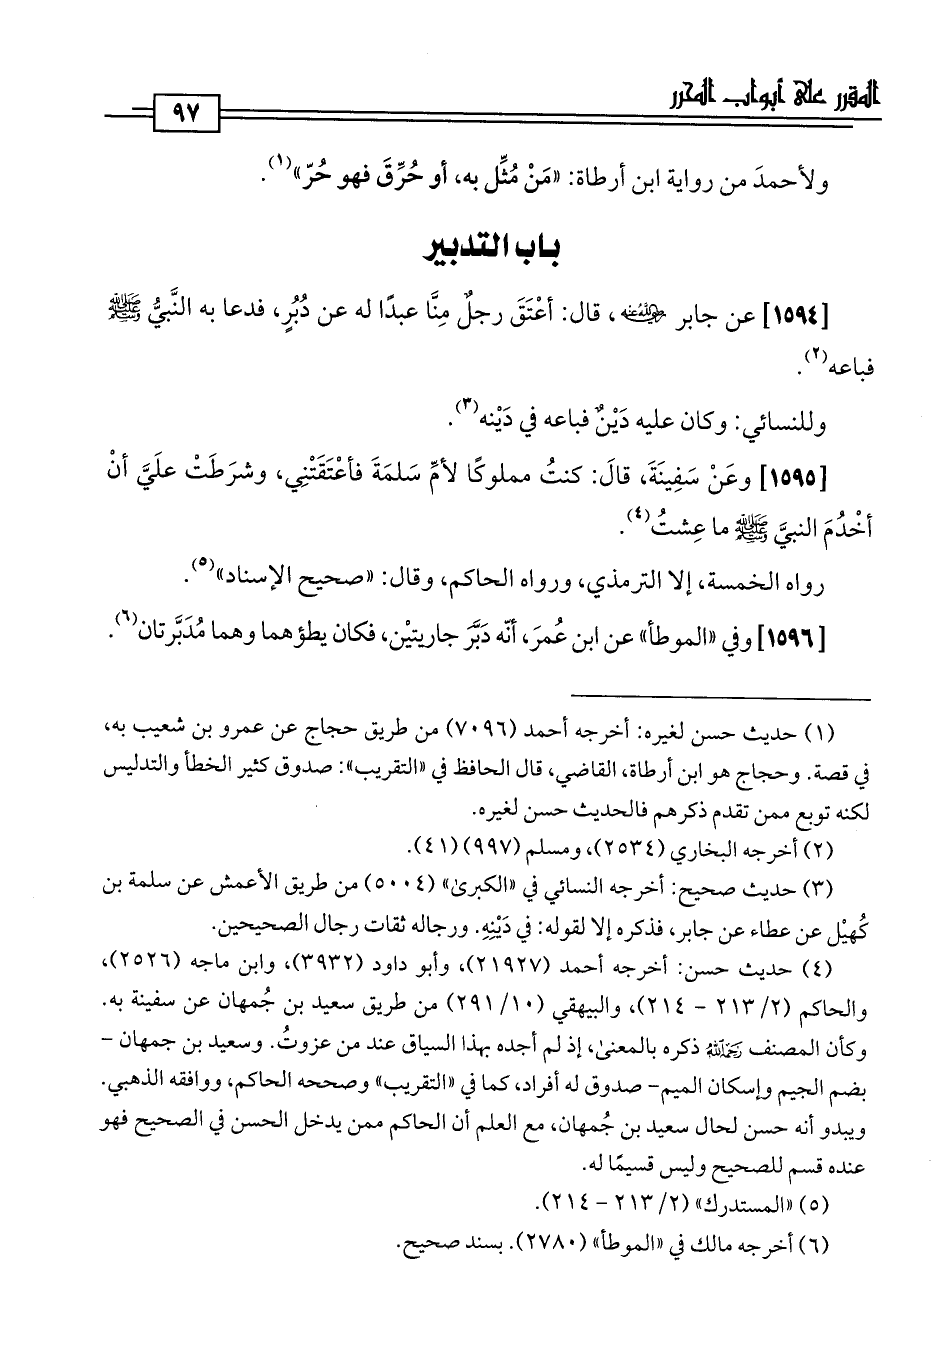 المقرر على أبواب المحرر
٩٧
ولأحمدَ من رواية ابن أرطاة: «مَنْ مُثِّل به، أو حُرِّقَ فهو حُرّ»(١).
باب التدبير
[١٥٩٤] عن جابر رضي الله عنه، قال: أعْتَقَ رجلٌ مِنَّا عبدًا له عن دُبُرٍ، فدعا به النَّبيُّ ﷺ
فباعه(٢).
وللنسائي: وكان عليه دَيْنٌ فباعه في دَيْنه(٣).
[١٥٩٥] وعَنْ سَفِينَةَ، قالَ: كنتُ مملوكًا لأمِّ سَلمةَ فأعْتَقَتْنِي، وشرَطَتْ عليَّ أنْ
أخْدُمَ النبيَّ ﷺ ما عِشتُ(٤).
رواه الخمسة، إلا الترمذي، ورواه الحاكم، وقال: «صحيح الإسناد»(٥).
[١٥٩٦] وفي «الموطأ» عن ابن عُمرَ، أنّه دَبَّرَ جاريتيْن، فكان يطؤهما وهما مُدَبَّرتان(٦).
(١) حديث حسن لغيره: أخرجه أحمد (٧٠٩٦) من طريق حجاج عن عمرو بن شعيب به،
في قصة. وحجاج هو ابن أرطاة، القاضي، قال الحافظ في «التقريب»: صدوق كثير الخطأ والتدليس
لكنه توبع ممن تقدم ذكرهم فالحديث حسن لغيره.
(٢) أخرجه البخاري (٢٥٣٤)، ومسلم (٩٩٧) (٤١).
(٣) حديث صحيح: أخرجه النسائي في «الكبرى» (٥٠٠٤) من طريق الأعمش عن سلمة بن
كُهيْل عن عطاء عن جابر، فذكره إلا لقوله: في دَيْنِهِ. ورجاله ثقات رجال الصحيحين.
(٤) حديث حسن: أخرجه أحمد (٢١٩٢٧)، وأبو داود (٣٩٣٢)، وابن ماجه (٢٥٢٦)،
والحاكم (٢/ ٢١٣ - ٢١٤)، والبيهقي (١٠/ ٢٩١) من طريق سعيد بن جُمهان عن سفينة به.
وكأن المصنف رحمه الله ذكره بالمعنى، إذ لم أجده بهذا السياق عند من عزوتُ. وسعيد بن جمهان -
بضم الجيم وإسكان الميم- صدوق له أفراد، كما في «التقريب» وصححه الحاكم، ووافقه الذهبي.
ويبدو أنه حسن لحال سعيد بن جُمهان، مع العلم أن الحاكم ممن يدخل الحسن في الصحيح فهو
عنده قسم للصحيح وليس قسيمًا له.
(٥) «المستدرك» (٢/ ٢١٣ - ٢١٤).
(٦) أخرجه مالك في «الموطأ» (٢٧٨٠). بسند صحيح.